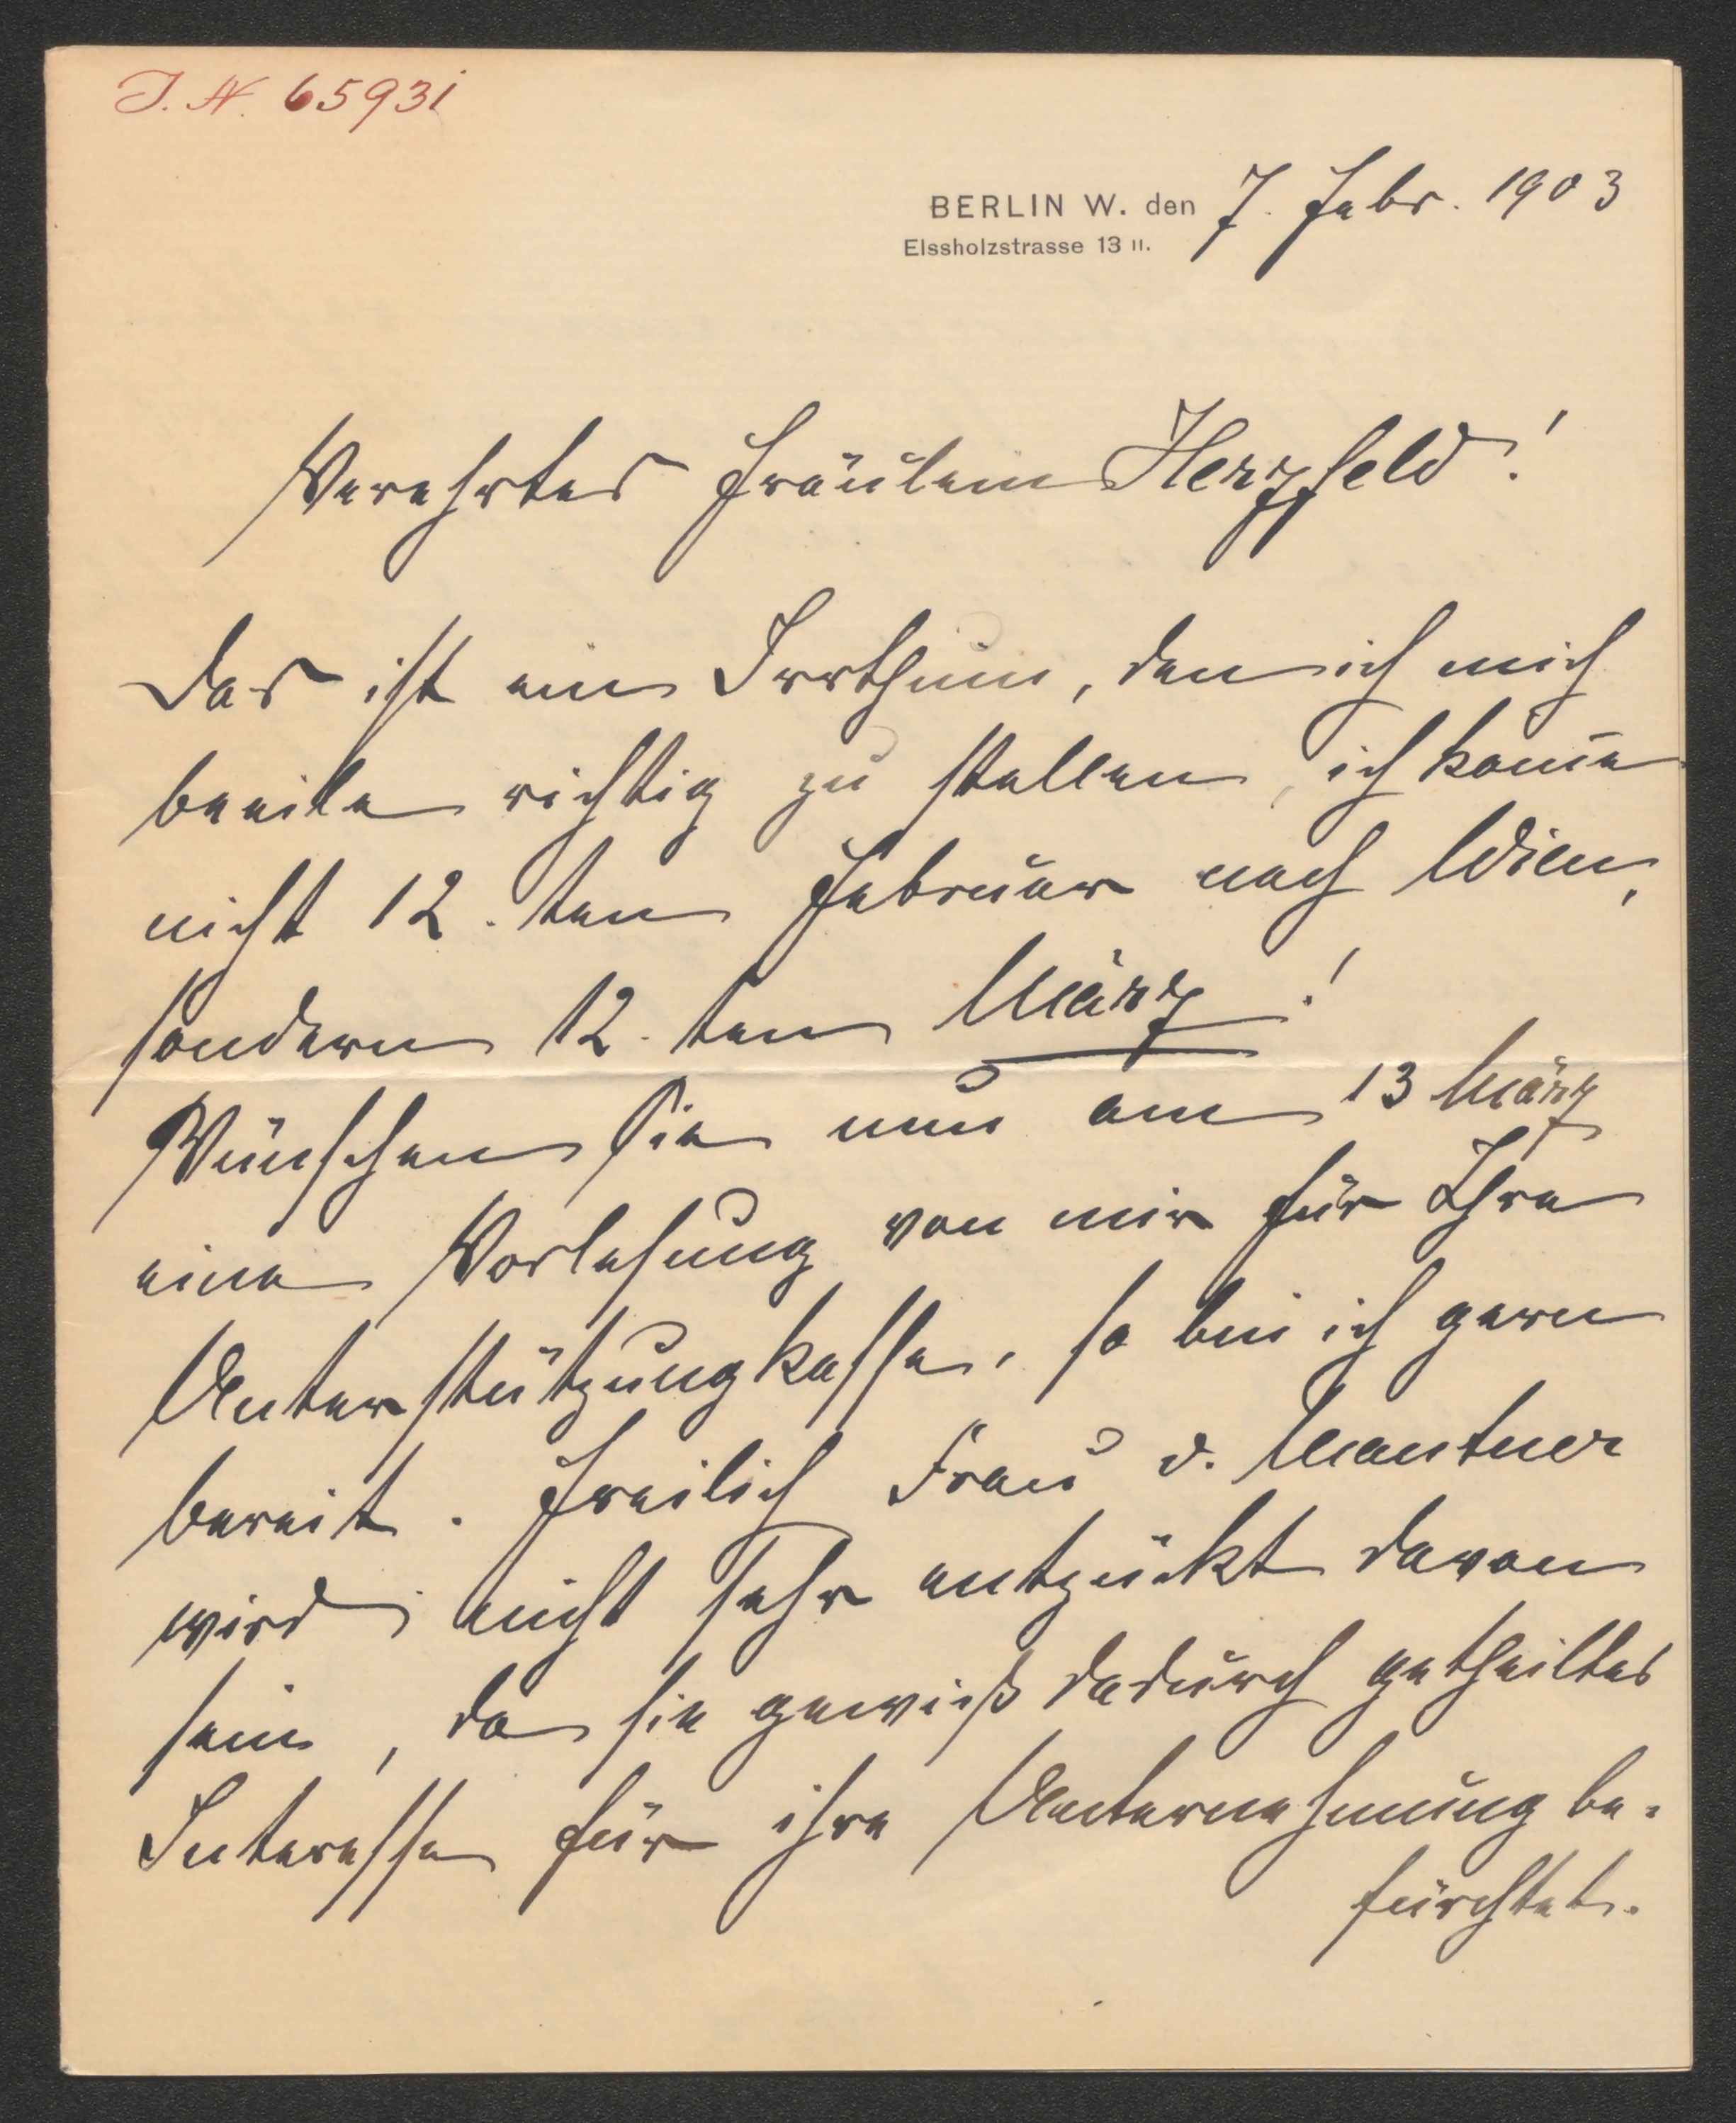 J. N. 65931
BERLIN W. den 7. Febr. 1903
Elssholzstrasse 13 II.
Verehrtes Fräulein Herzfeld!
Das ist ein Irrthum, den ich mich
beeile richtig zu stellen, ich kom̄e
nicht 12.ten Februar nach Wien,
sondern 12.ten März!
Wünschen Sie nun am 13 März
eine Vorlesung von mir für Ihre
Unterstützungkasse, so bin ich gern
bereit. Freilich Frau v. Mautner
wird nicht sehr entzückt davon
sein, da sie gewiß dadurch getheiltes
Interesse für ihre Unternehmung be-
fürchtet.